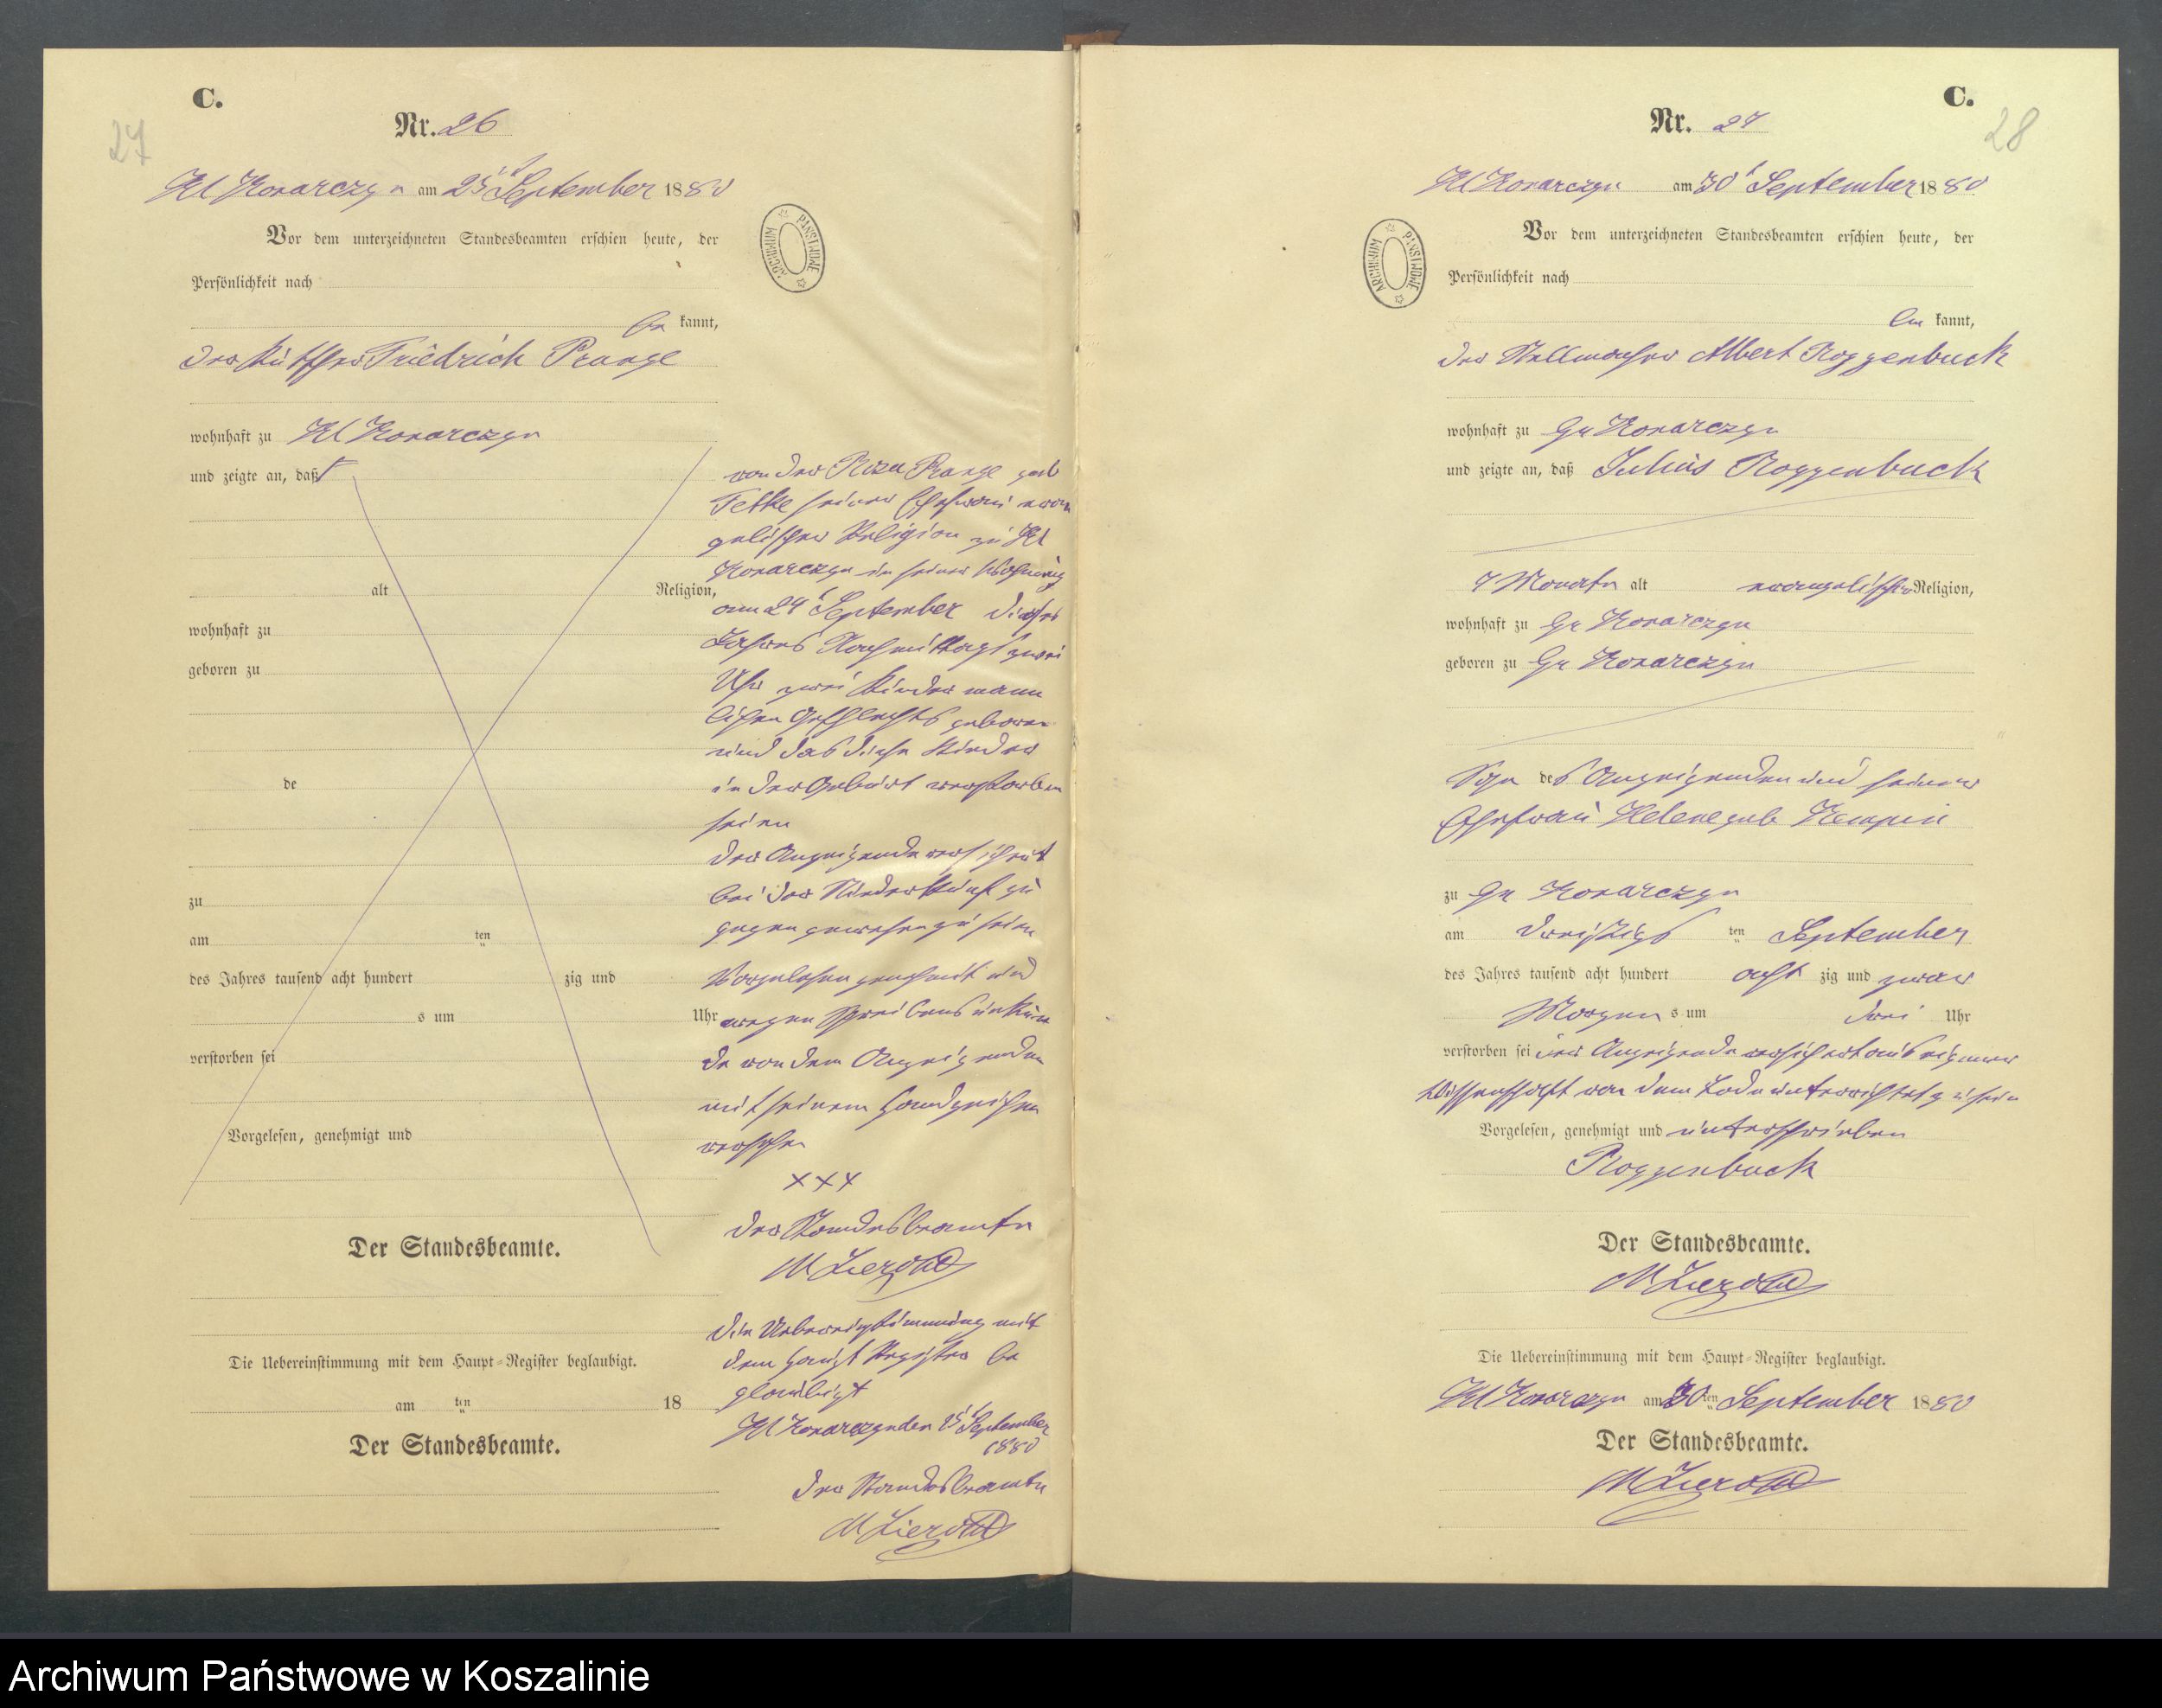 C.
27
Nr. 26
Kl Konarczyn am 25t September 1880
Vor dem unterzeichneten Standesbeamten erschien heute, der
Persönlichkeit nach
be kannt,
der Friedrich Prange
wohnhaft zu Kl Konarczyn
und zeigte an, daß
alt Religion,
wohnhaft zu
geboren zu
de
zu
am ten
des Jahres tausend acht hundert zig und
s um Uhr
verstorben sei
Vorgelesen, genehmigt und
Der Standesbeamte.
Die Uebereinstimmung mit dem Haupt-Register beglaubigt.
am ten 18
Der Standesbeamte.
von der Prange geb
Tetke seiner Ehefrau evan
gelischer Religion zu Kl
Konarczyn in seiner Wohnung
am 24t September dieses
Jahres Nachmittags zwei
Uhr zwei Kinder männ
lichen Geschlechts geboren
und das diese Kinder
in der Geburt verstorben
seien
der Anzeigende versichert
bei der Niederkunft zu
gegen gewesen zu seien
Vorgelesen genehmigt und
wegen Schreibens unkun
de von dem Anzeigenden
mit seinem Handzeichen
versehen
XXX
der Standesbeamte
M Zierold
die Uebereinstimmung mit
dem Haupt Register be
glaubigt
Kl Konarczyn den 25t September
1880
der Standesbeamte
M Zierold
ARCHIWUM PAŃSTWOWE
C.
28
Nr. 27
Kl Konarczyn am 30t September 1880
Vor dem unterzeichneten Standesbeamten erschien heute, der
Persönlichkeit nach
be kannt,
der Stellmacher Albert Roggenbuck
wohnhaft zu Gr Konarczyn
und zeigte an, daß Julius Roggenbuck
Monate alt evangelischer Religion,
wohnhaft zu Gr Konarczyn
geboren zu Gr Konarczyn
Sohn des Anzeigenden und seiner
Ehefrau Helene geb Kempin
zu Gr Konarczyn
am dreizigs ten September
des Jahres tausend acht hundert acht zig und zwar
Morgen s um drei Uhr
verstorben sei der Anzeigende versichert aus eigener
Wissenschaft von dem Tode unterrichtet zu sein
Vorgelesen, genehmigt und unterschrieben
Roggenbuck
Der Standesbeamte.
M Zierold
Die Uebereinstimmung mit dem Haupt-Register beglaubigt.
Kl Konarczyn am 30ten September 1880
Der Standesbeamte.
M Zierold
ARCHIWUM PAŃSTWOWE
Archiwum Państwowe w Koszalinie